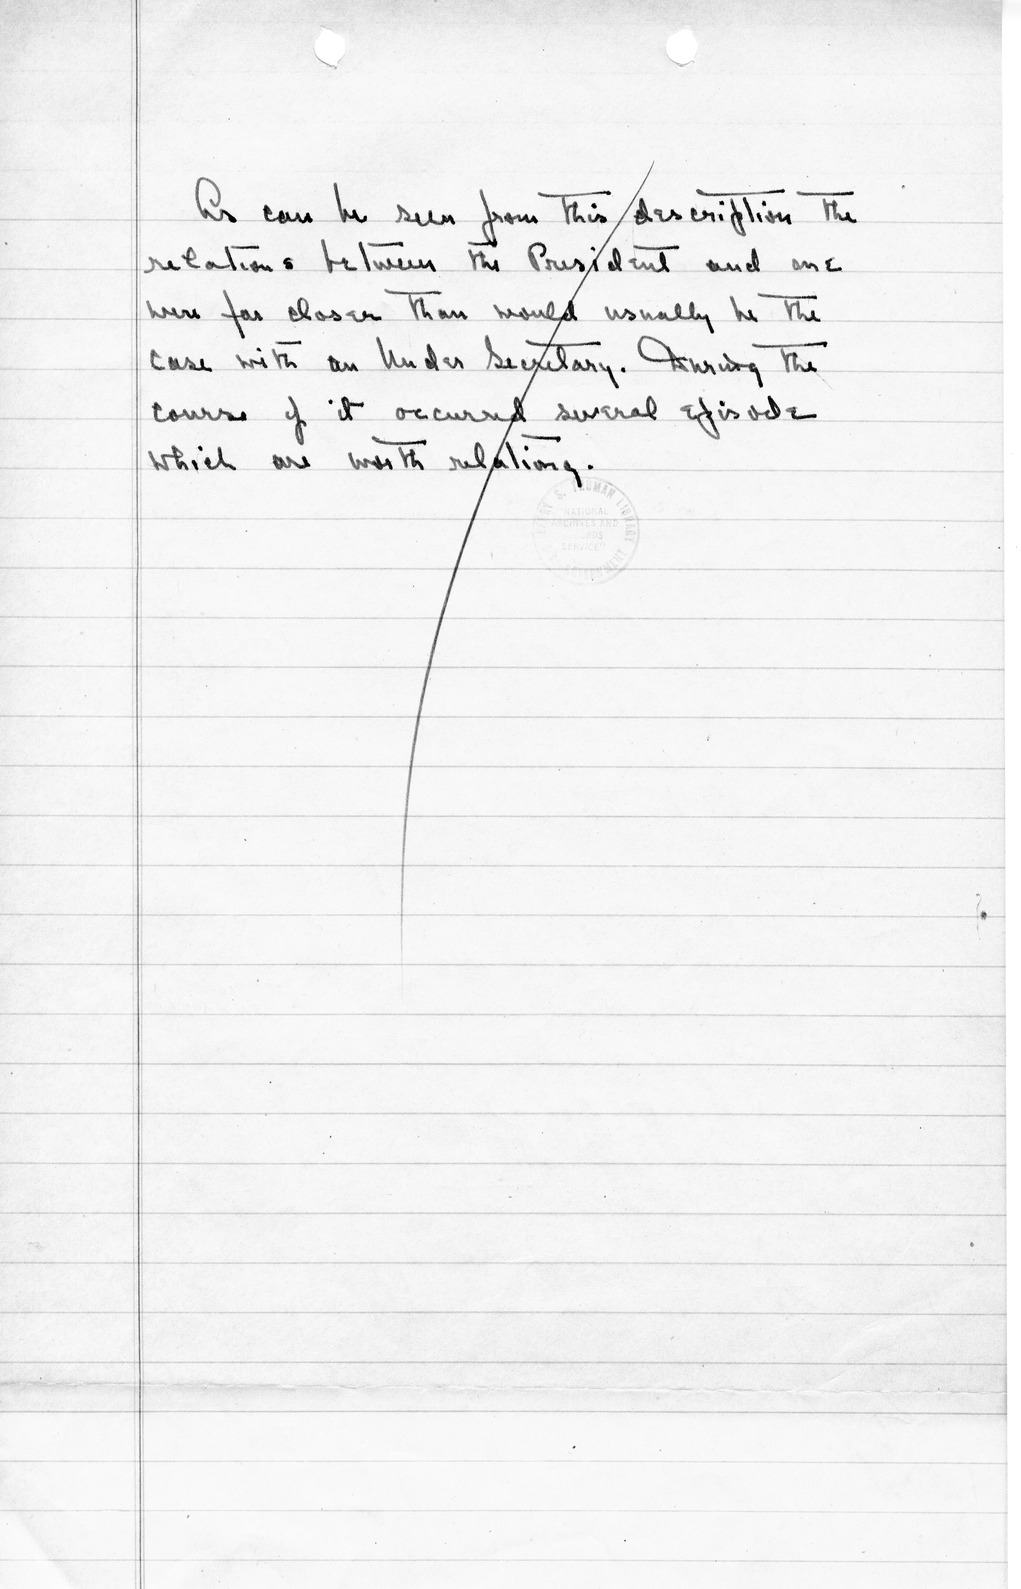 As can be seen from this description the
relations between the President and me
were far closer than would usually be the
case with an Under Secretary. During the
course of it occurred several episode
which are worth relating.
HARRY S. TRUMAN LIBRARY
NATIONAL
ARCHIVES AND
RECORDS
SERVICE
GOVERNMENT